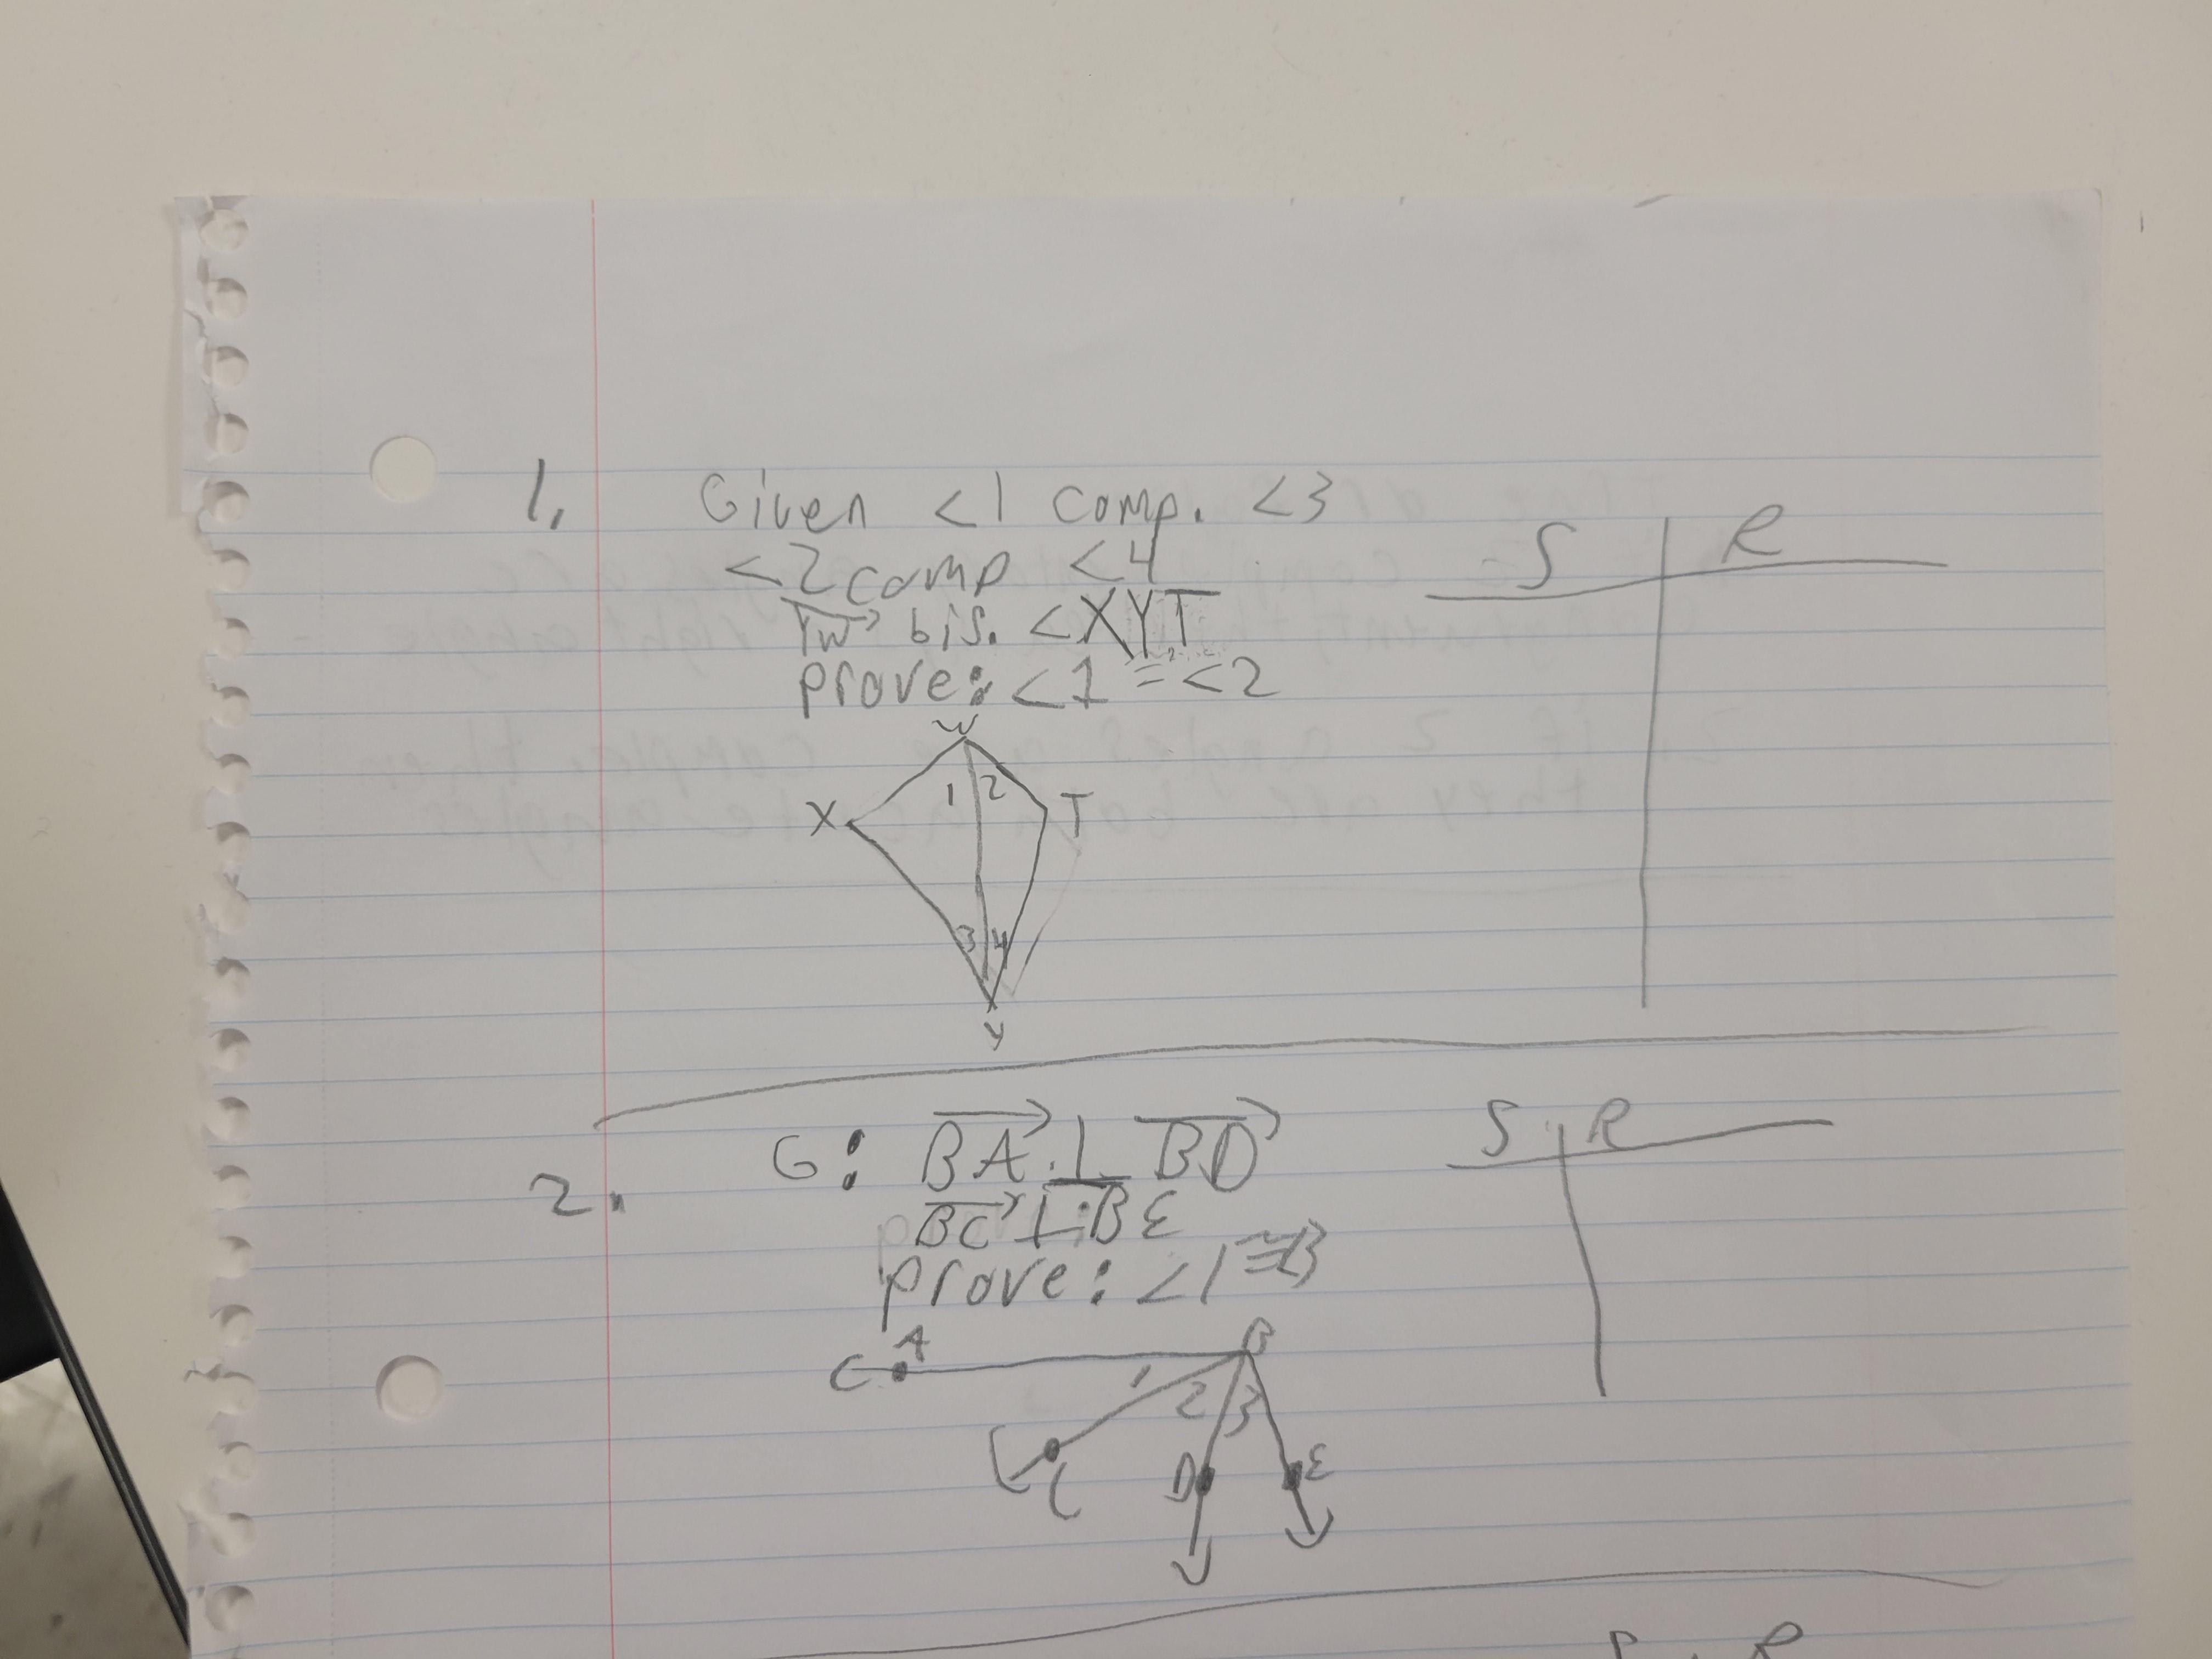 1. Given <1 comp. <3
<2 comp <4
YW bis. <XYT
prove: <1 ≅ <2
S R
W
1 2
X T
3 4
Y
2. G: BA ⊥ BD
BC ⊥ BE
prove: <1 ≅ <3
S R
A B
1
2 3
C D E
R